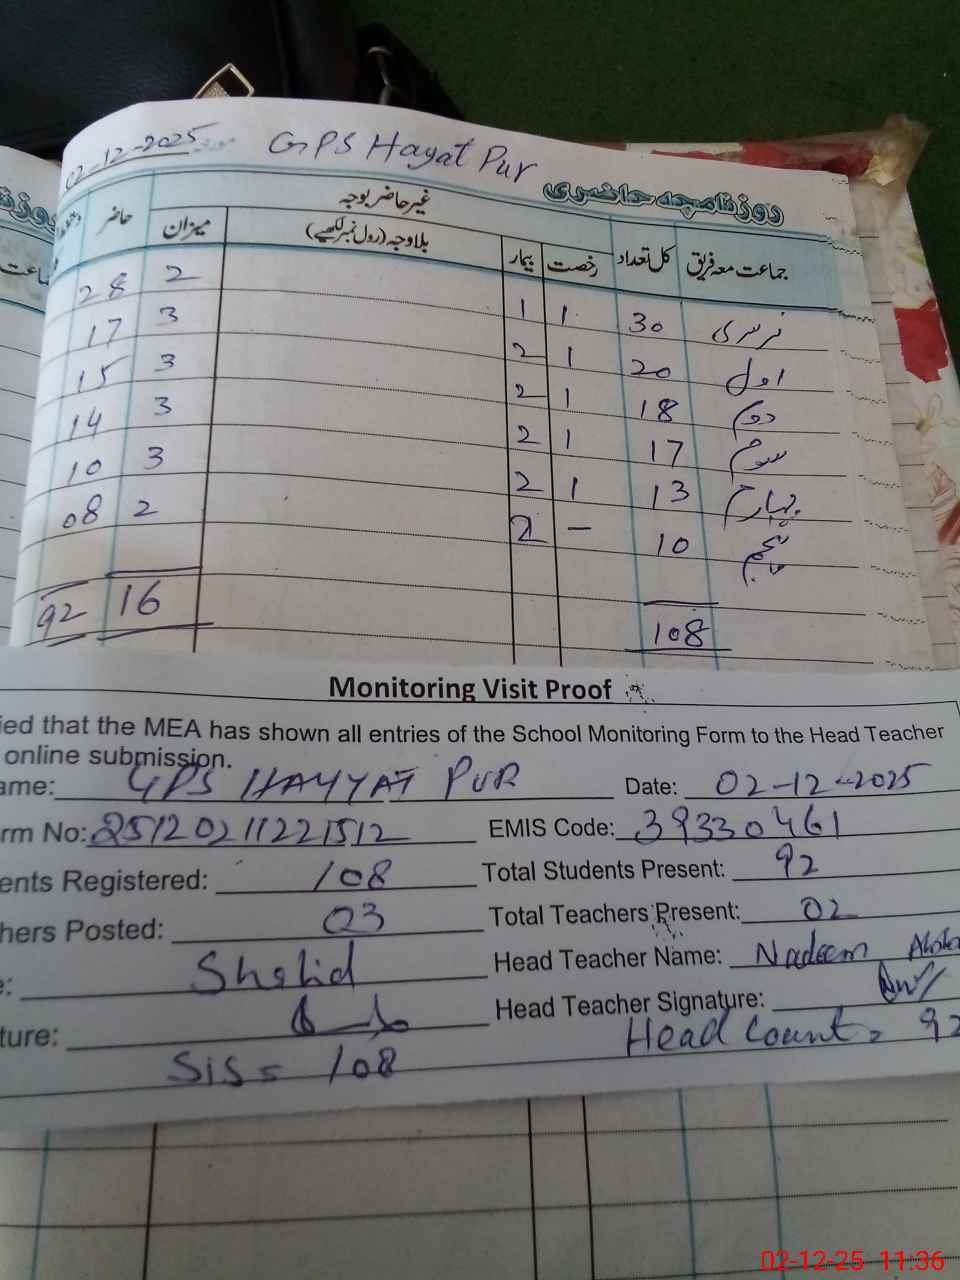 02-12-2025 مورخہ GPS Hayat Pur
روزنامچہ حاضری
جماعت معہ فریق کل تعداد رخصت بیمار بلاوجہ (رول نمبر لکھیے) میزان حاضر
غیر حاضر بوجہ
نرسری 30 1 1 2 28
اول 20 1 2 3 17
دوم 18 1 2 3 15
سوم 17 1 2 3 14
چہارم 13 1 2 3 10
پنجم 10 – 2 2 08
108 16 92
Monitoring Visit Proof
ied that the MEA has shown all entries of the School Monitoring Form to the Head Teacher
online submission.
ame: GPS HAYYAT PUR Date: 02-12-2025
rm No: 25120211221512 EMIS Code: 39330461
ents Registered: 108 Total Students Present: 92
hers Posted: 03 Total Teachers Present: 02
e: Shahid Head Teacher Name: Nadeem
ture: Head Teacher Signature:
SiS = 108 Head Count = 92
02-12-25 11:36